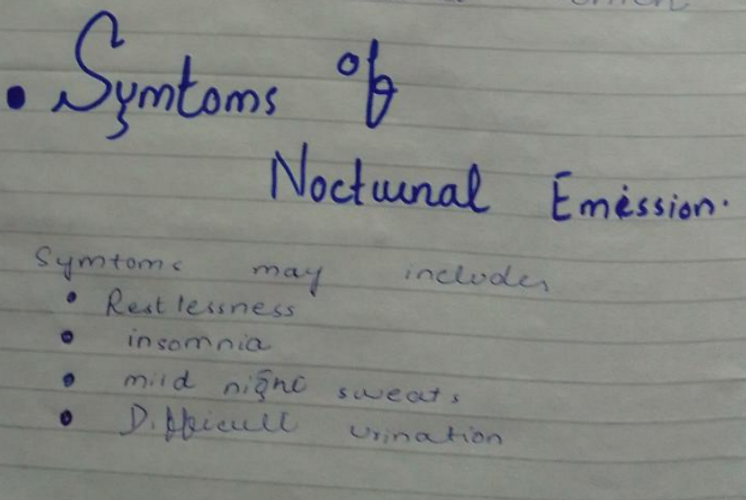 • Symtoms of
Noctuunal Emission.
Symtoms may includes
• Restlessness
• insomnia
• mild night sweats
• Difficult urination